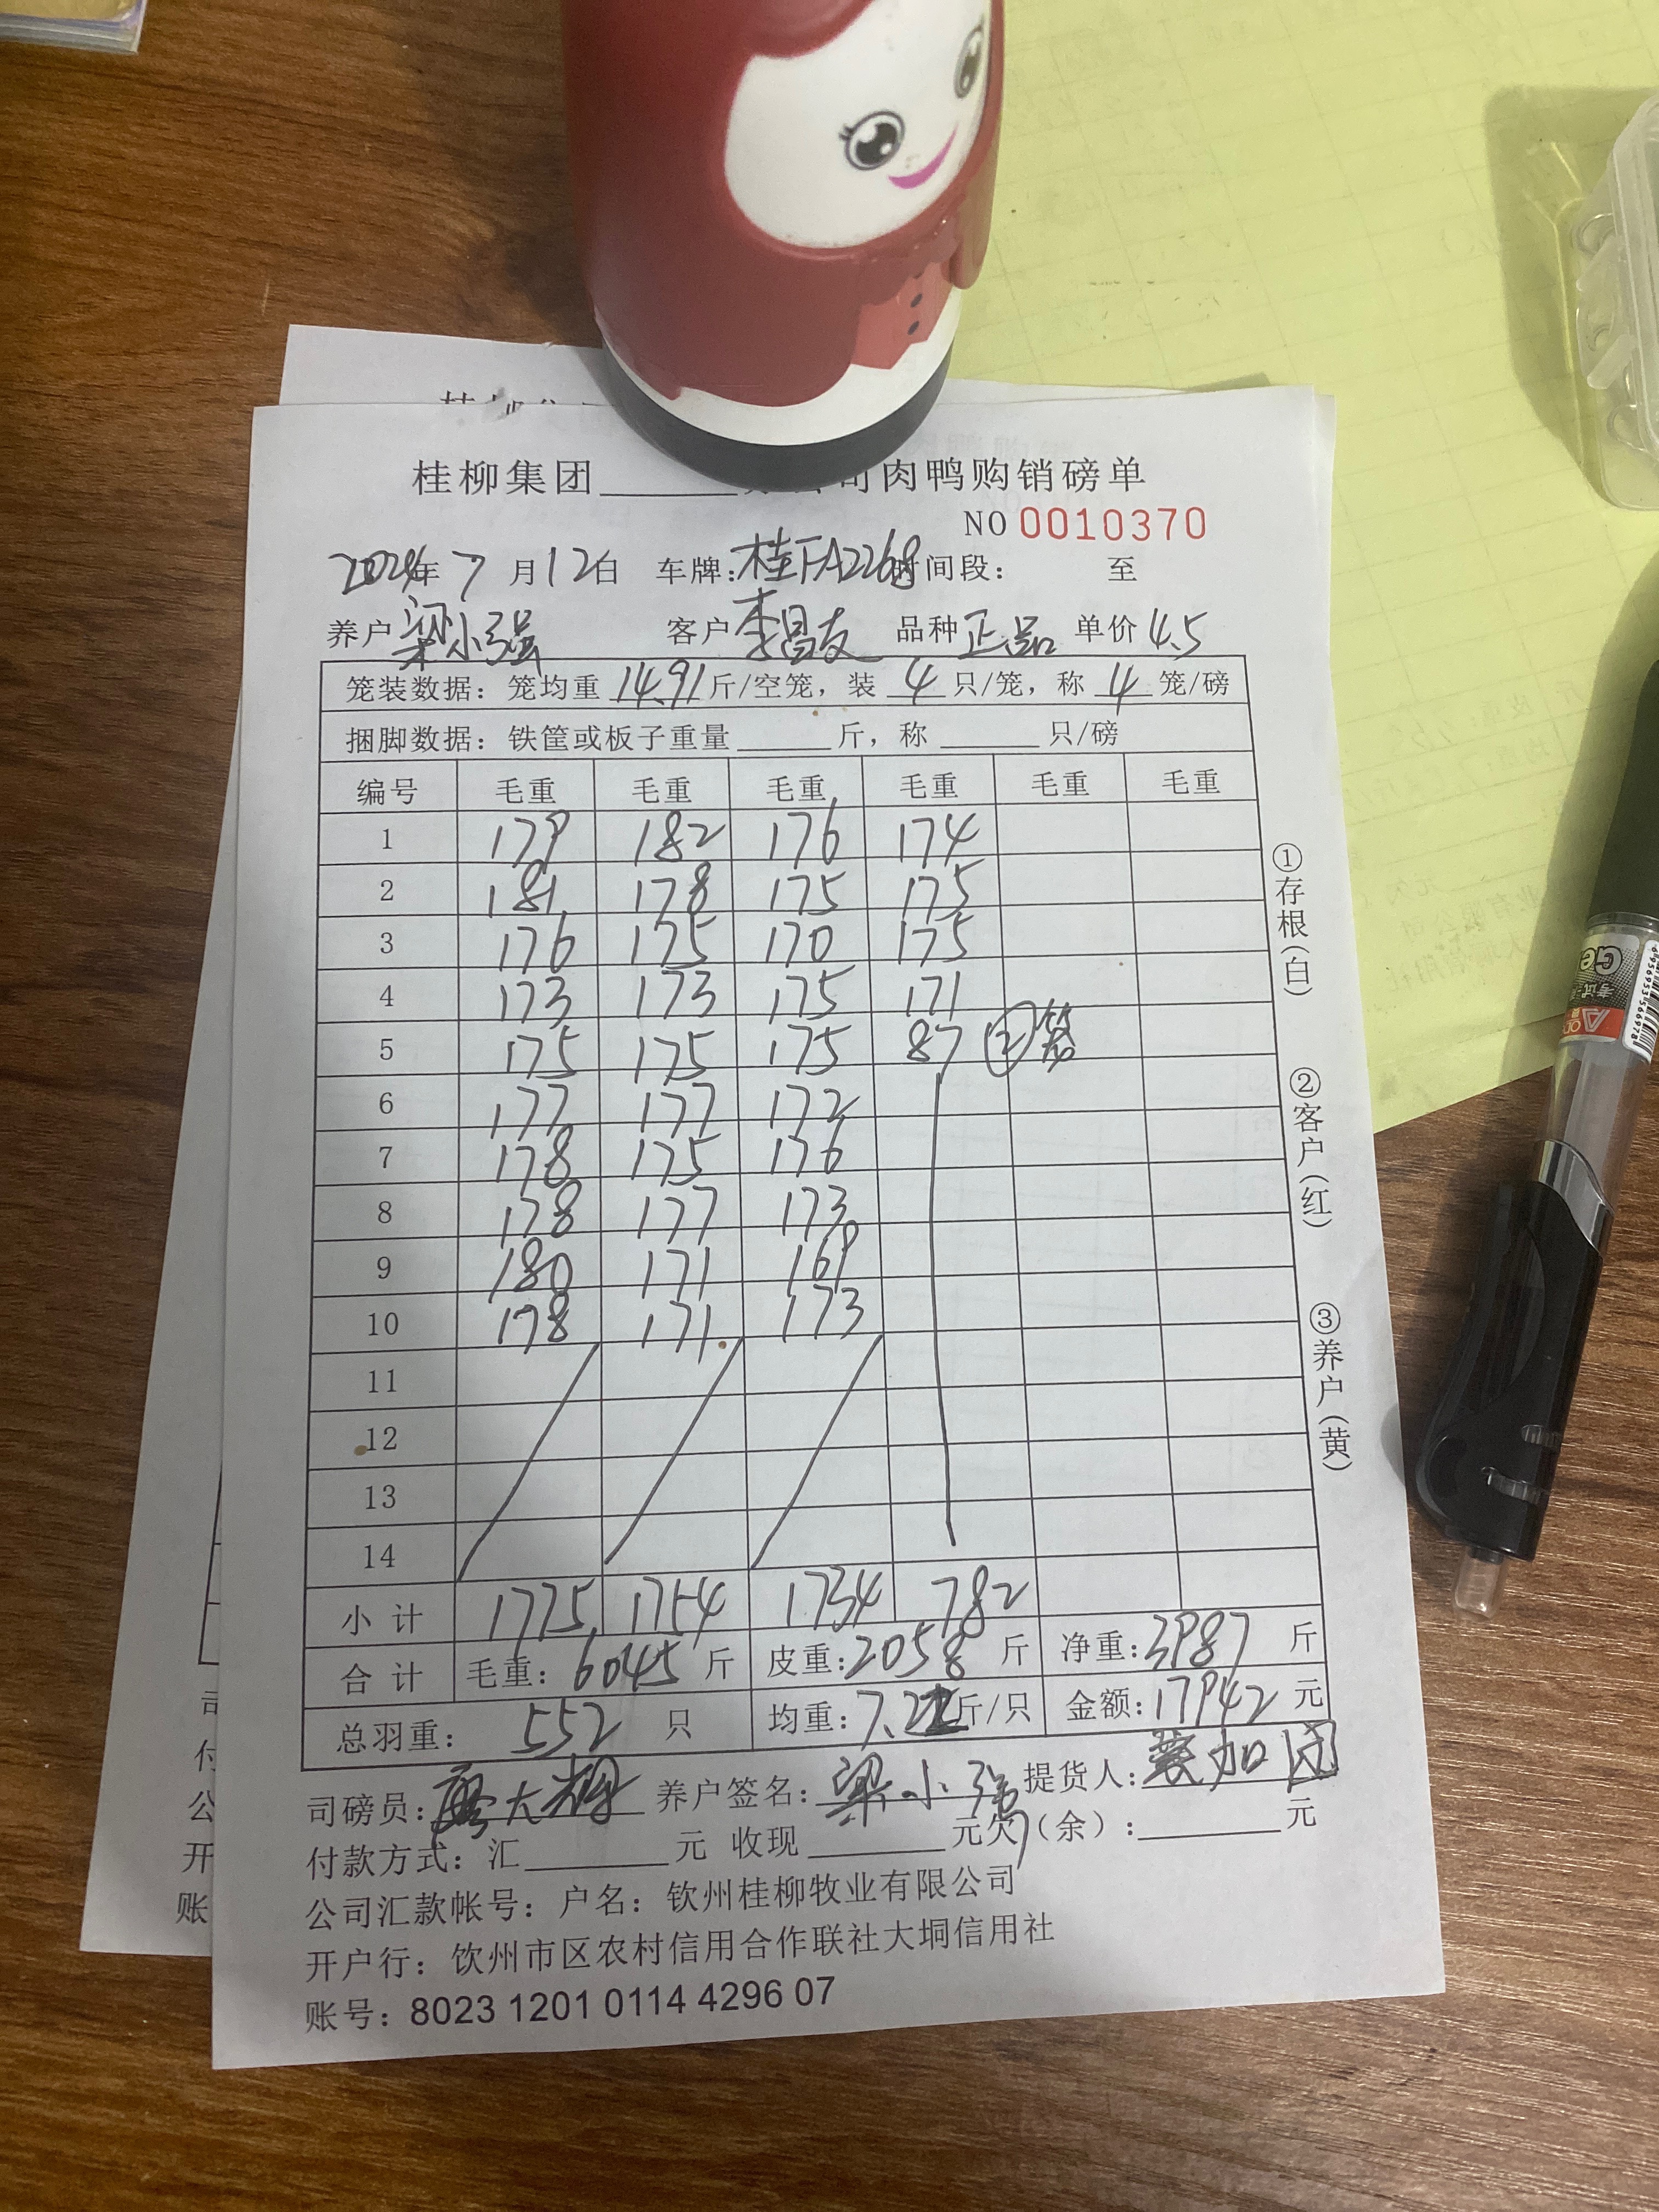 桂柳集团______ 公司肉鸭购销磅单
NO 0010370
2024年 7 月 12日 车牌:桂FA2268 时间段: 至
养户 梁小强 客户 李昌友 品种 正品 单价 4.5
笼装数据: 笼均重 14.91 斤/空笼, 装 4 只/笼, 称 4 笼/磅
捆脚数据: 铁筐或板子重量______斤, 称______只/磅
编号 毛重 毛重 毛重 毛重 毛重 毛重
1 179 182 176 174
2 181 178 175 175
3 176 175 170 175
4 173 173 175 171
5 175 175 175 87 ②笼
6 177 177 172
7 178 175 176
8 178 177 173
9 180 171 169
10 178 171 173
11
12
13
14
小计 1775 1754 1734 782
合计 毛重: 6045 斤 皮重: 2058 斤 净重: 3987 斤
总羽重: 552 只 均重: 7.22 斤/只 金额: 17942 元
司磅员: 大 养户签名: 梁小强 提货人: 加团
付款方式: 汇______元 收现______元欠(余):______元
公司汇款帐号: 户名: 钦州桂柳牧业有限公司
开户行: 钦州市区农村信用合作联社大垌信用社
账号: 8023 1201 0114 4296 07
①存根(白)
②客户(红)
③养户(黄)
司
付
公
开
账